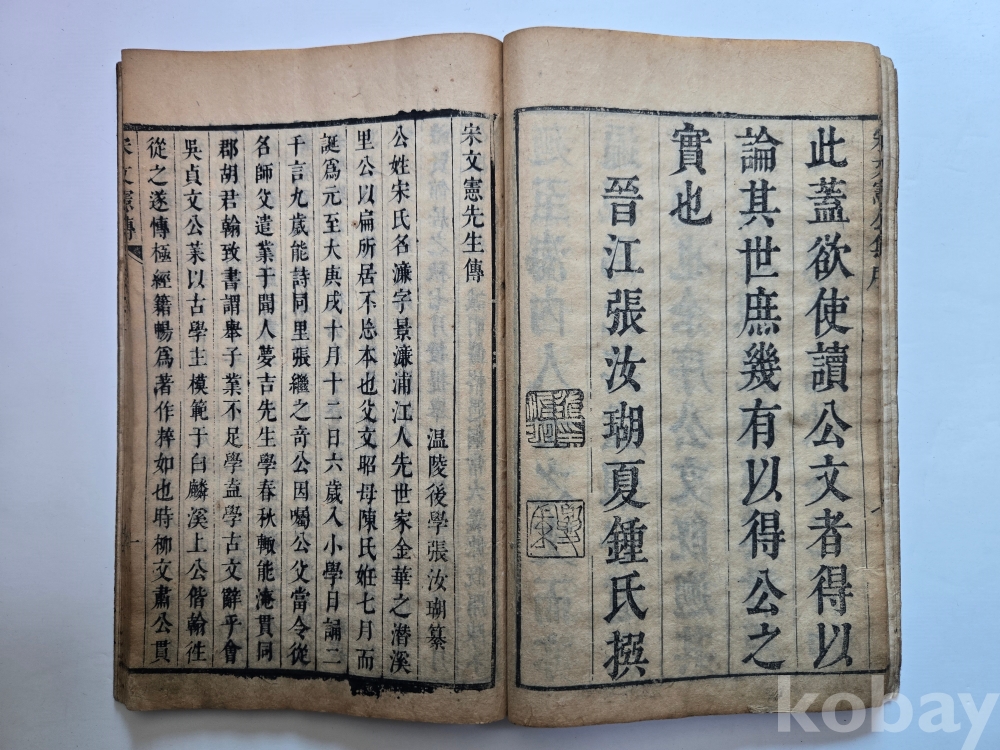 此蓋欲使讀公文者得以
論其世庶幾有以得公之
實也
晉江張汝瑚夏鍾氏撰
宋文憲先生傳
温陵後學張汝瑚纂
公姓宋氏名濂字景濂浦江人先世家金華之潛溪
里公以扁所居不忘本也父文昭母陳氏姙七月而
誕爲元至大庚戌十月十二日六歲入小學日誦二
千言九歲能詩同里張繼之奇公因囑公父當令從
名師父遣業于聞人夢吉先生學春秋輙能淹貫同
郡胡君翰致書謂舉子業不足學盍學古文辭乎會
吳貞文公萊以古學主模範于白麟溪上公偕翰徃
從之遂傳極經籍暢爲著作粹如也時柳文肅公貫
宋文憲傳
kobay